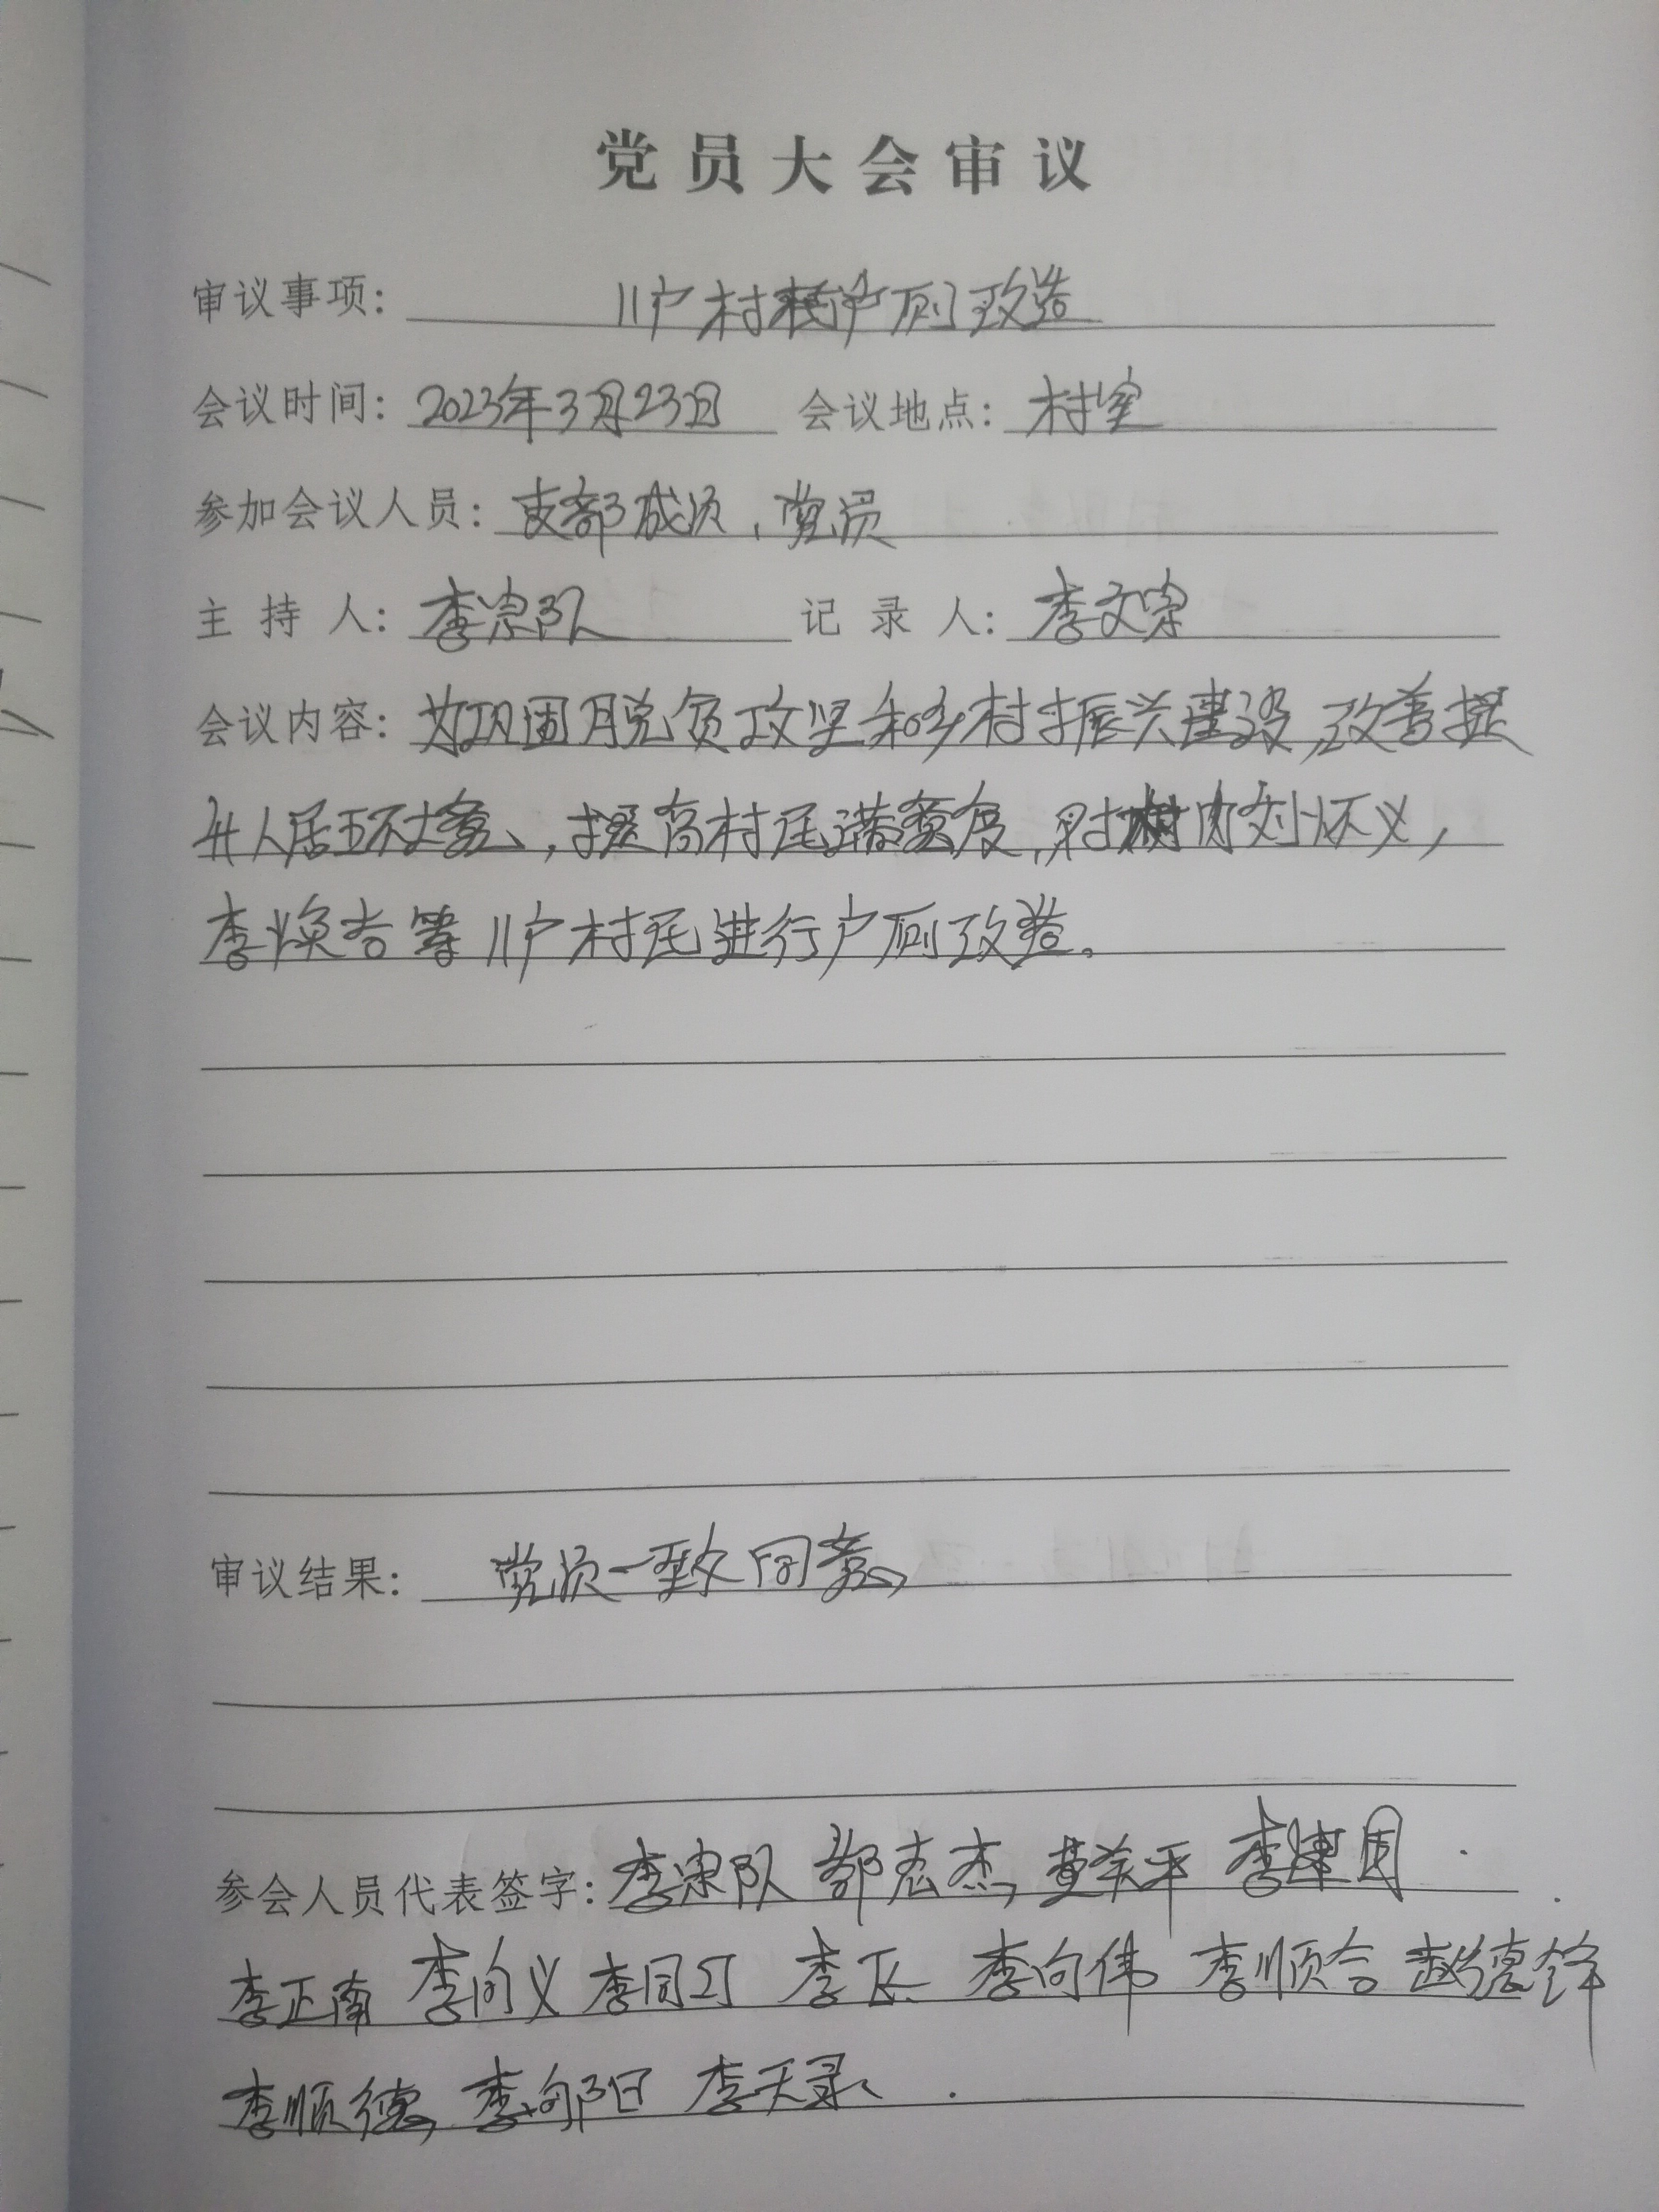 党员大会审议
审议事项: 11户村民户厕改造
会议时间: 2023年3月23日 会议地点: 村室
参加会议人员: 支部成员、党员
主 持 人: 李忠队 记 录 人: 李文宗
会议内容: 为巩固脱贫攻坚和乡村振兴建设,改善提
升人居环境,提高村民满意度,对村内刘怀义,
李焕吉等11户村民进行户厕改造。
审议结果: 党员一致同意
参会人员代表签字: 李忠队 郝志杰 李建国
李正南 李向义 李同习 李飞 李向伟 李顺合 赵德锋
李顺德 李向阳 李天录